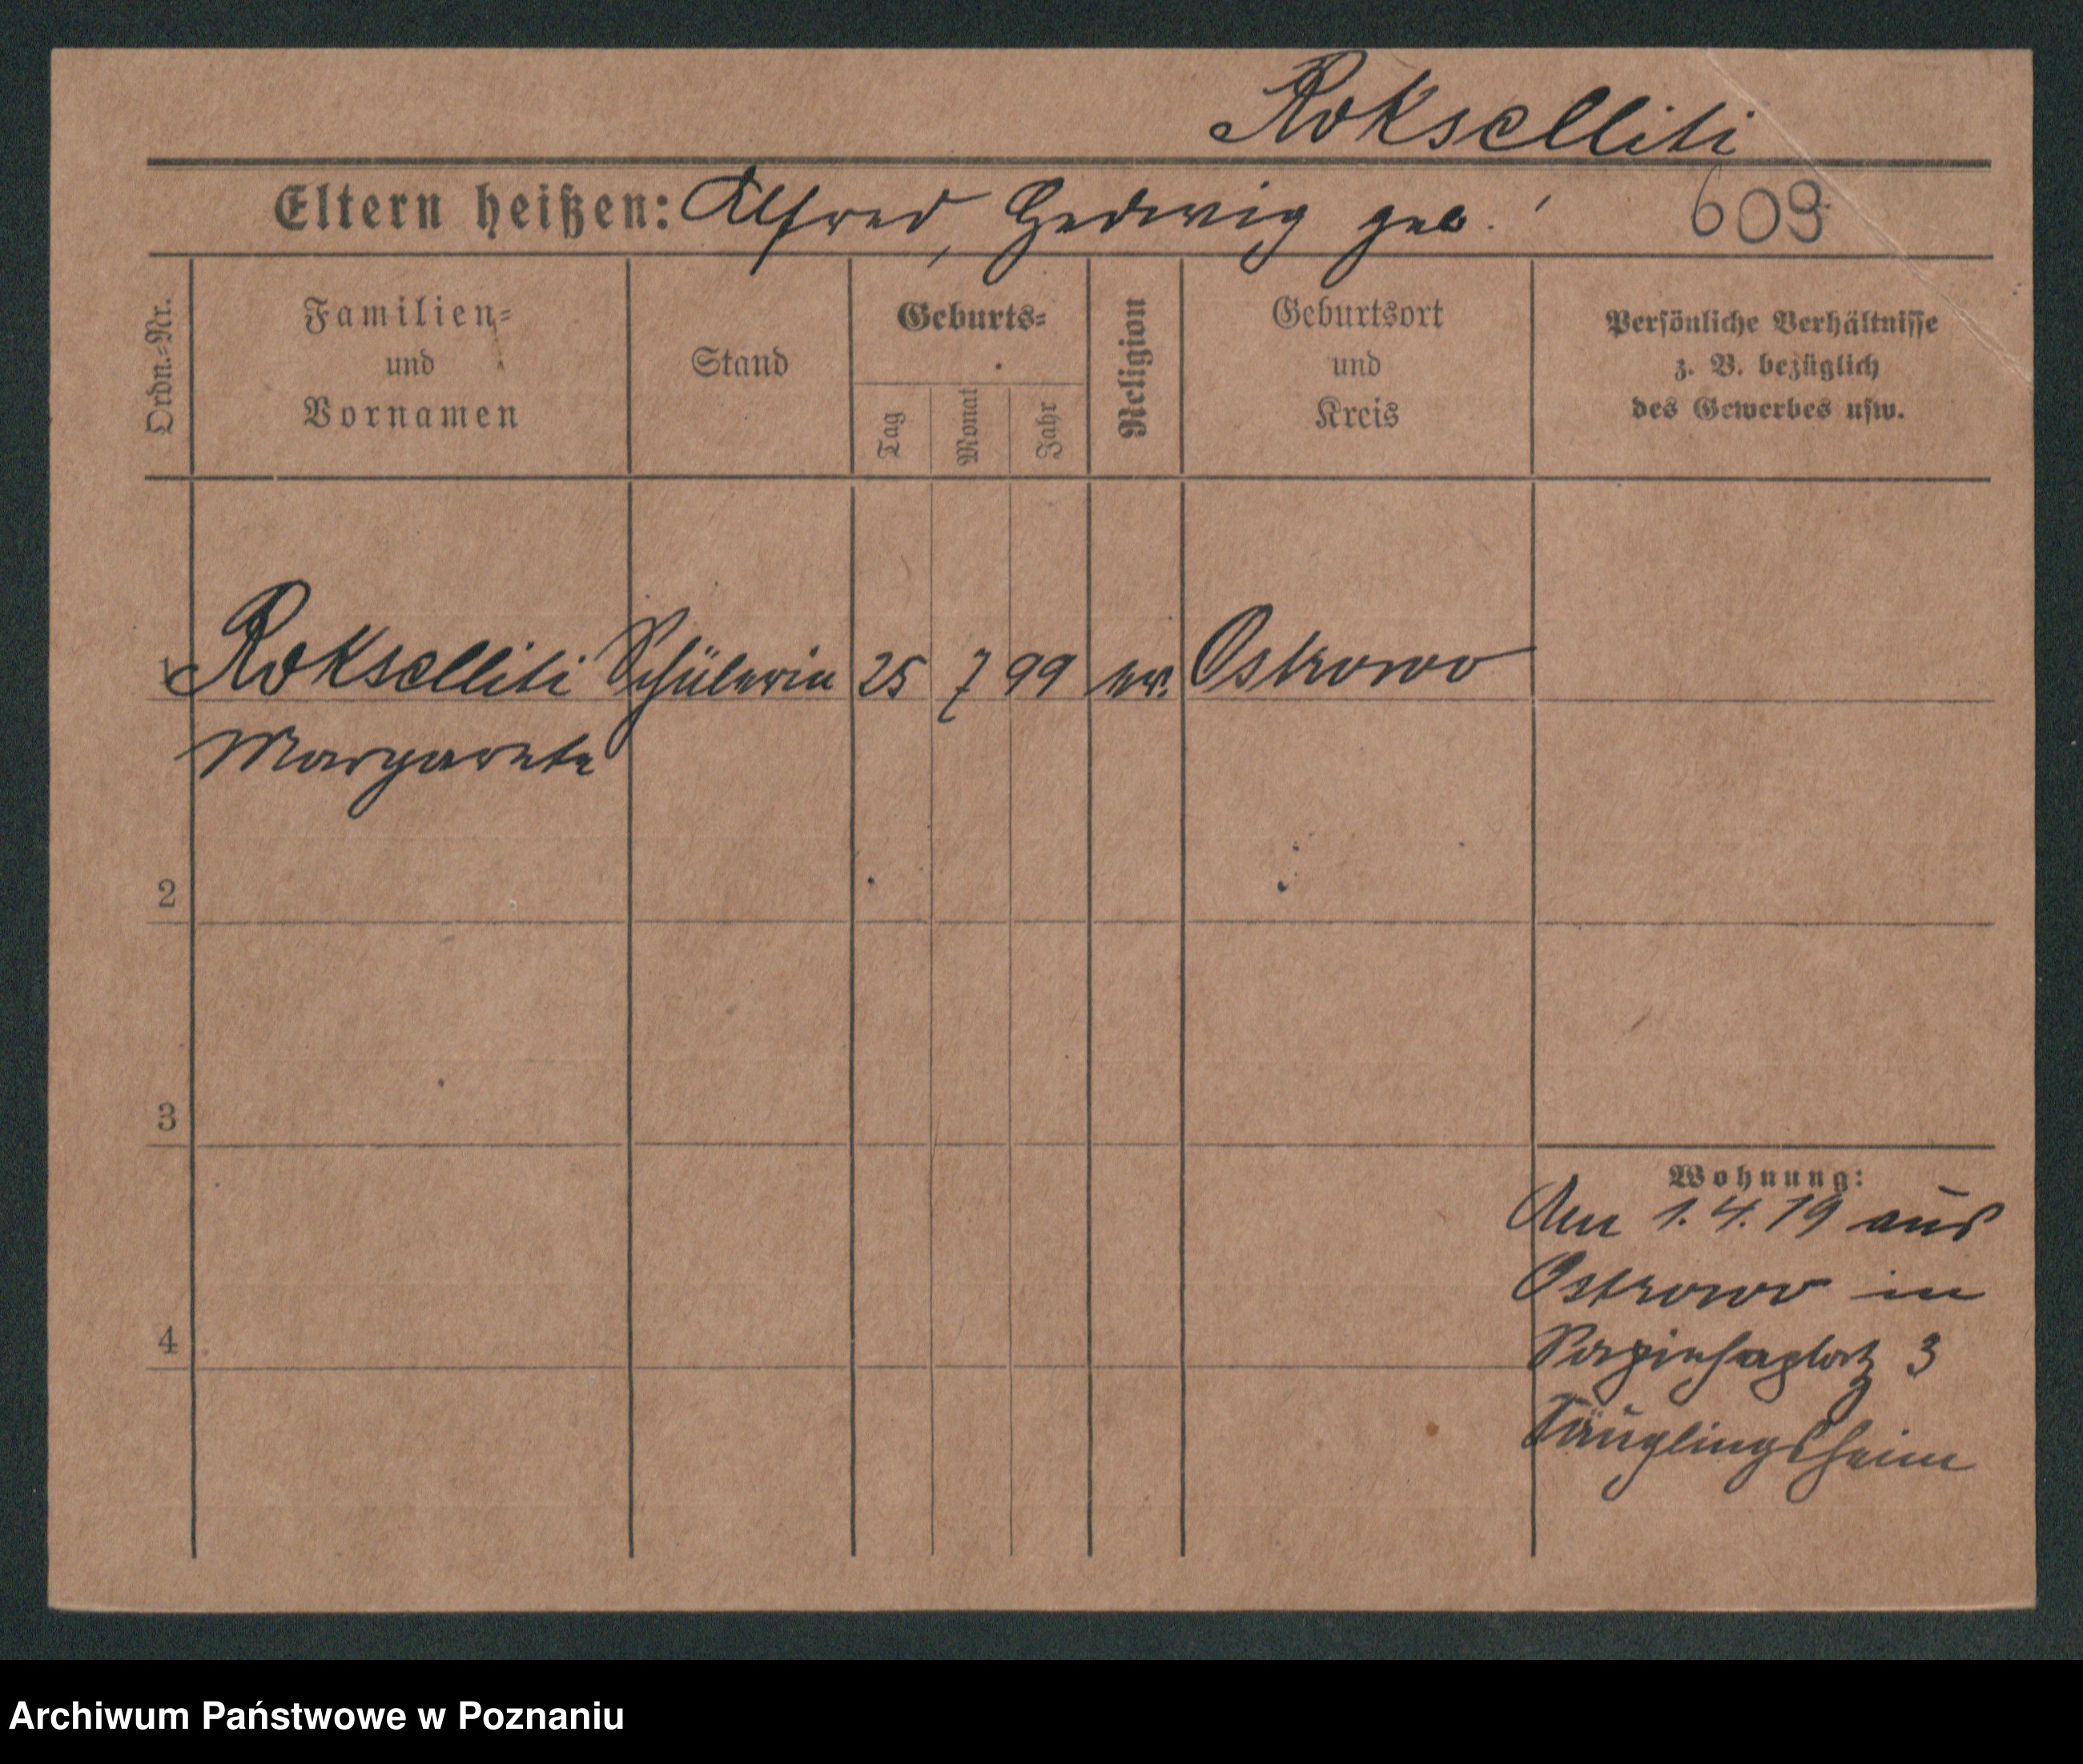 Rokselliti
Eltern heißen: Alfred, Hedwig geb.
609
Ordn.-Nr.
Familien-
und
Vornamen
Stand
Geburts-
Tag
Monat
Jahr
Religion
Geburtsort
und
Kreis
Persönliche Verhältnisse
z. B. bezüglich
des Gewerbes usw.
1 Rokselliti Schülerin 25 7 99 ev. Ostrowo
Margarete
2
3
4
Wohnung:
Am 1.4.19 aus
Ostrowo in
3
Säuglingsheim
Archiwum Państwowe w Poznaniu